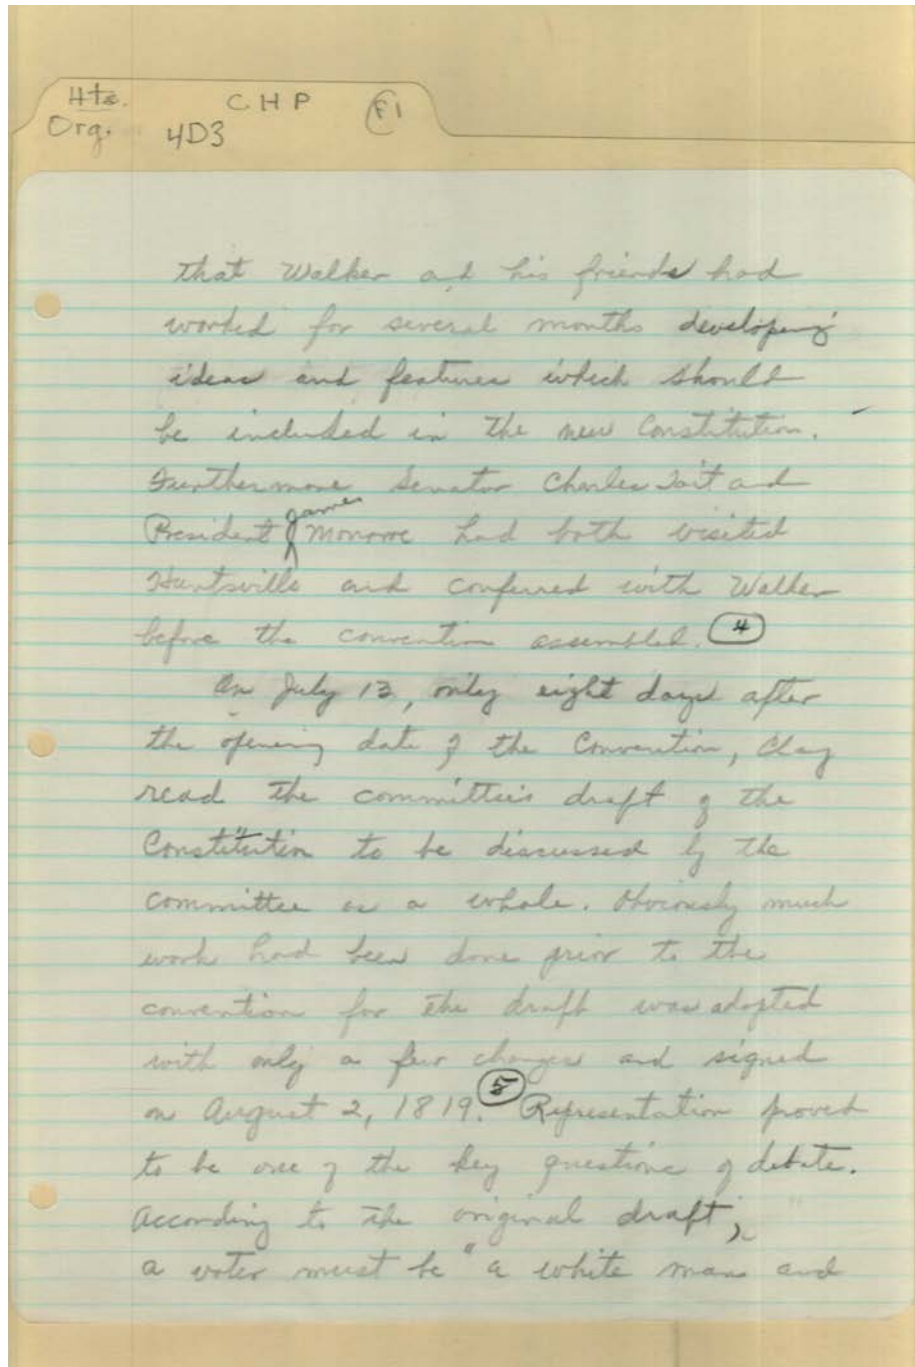 Hts. CHP F1
Org. 4D3
that Walker and his friends had
worked for several months developing
ideas and features which should
be included in the new Constitution.
Furthermore Senator Charles Tait and
President James Monroe had both visited
Huntsville and conferred with Walker
before the convention assembled. 4
On July 13, only eight days after
the opening date of the Convention, Clay
read the committee's draft of the
Constitution to be discussed by the
committee as a whole. Obviously much
work had been done prior to the
convention for the draft was adopted
with only a few changes and signed
on August 2, 1819. 5 Representation proved
to be one of the key questions of debate.
According to the original draft,
a voter must be "a white man and